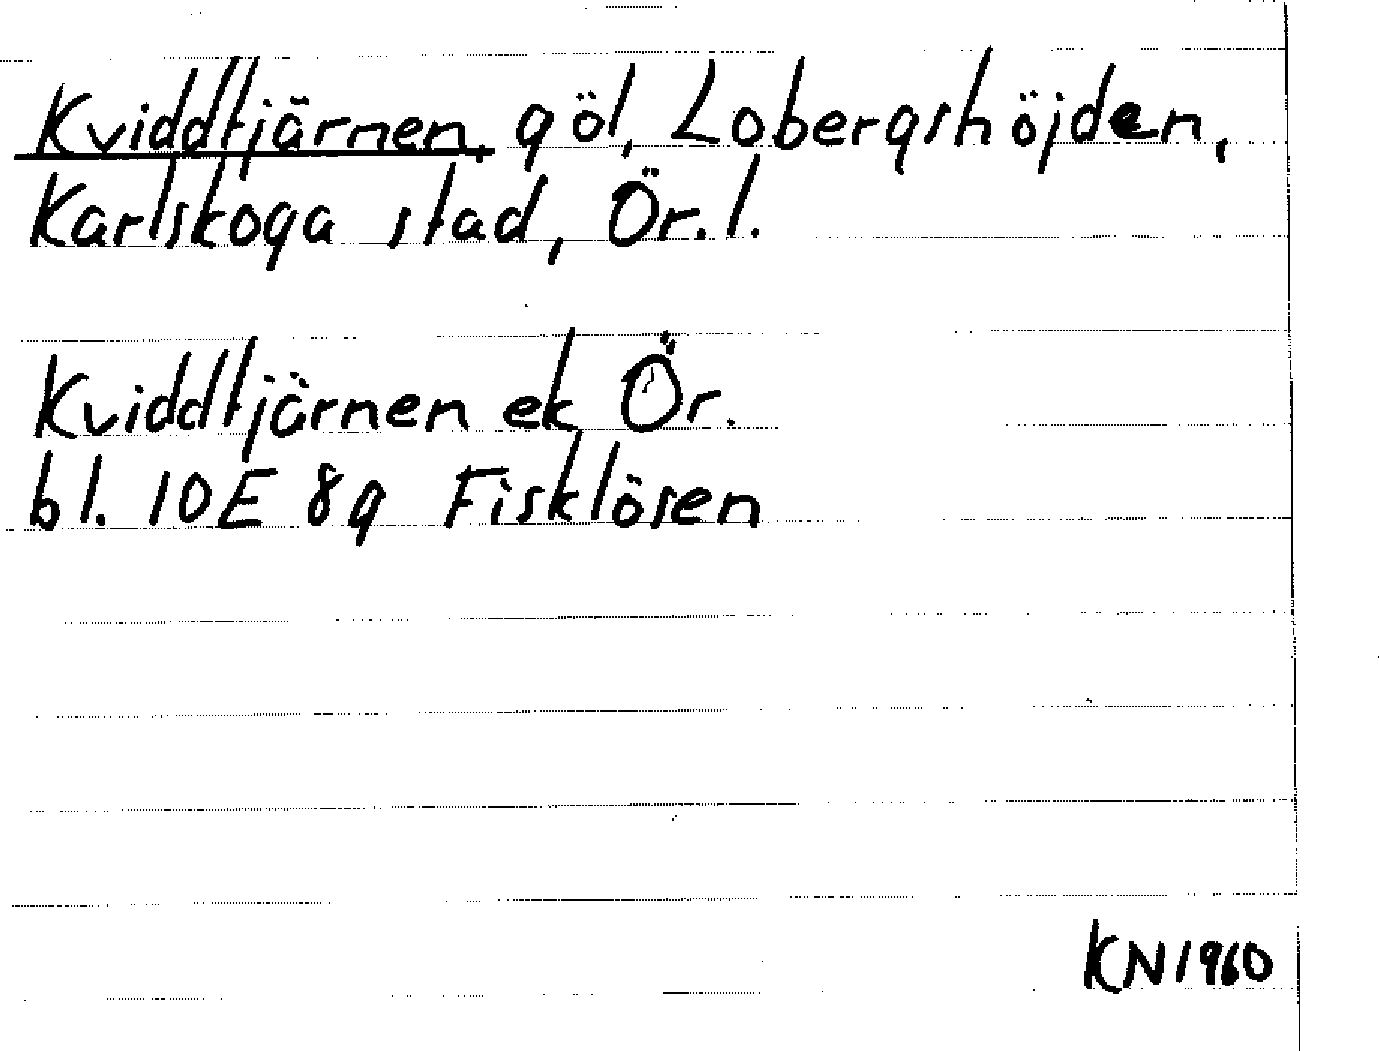 Kviddtjärnen, göl, Lobergshöjden,
Karlskoga stad, Ör.l.
Kviddtjärnen ek Ör.
bl. 10E 8g Fisklösen
KN1960